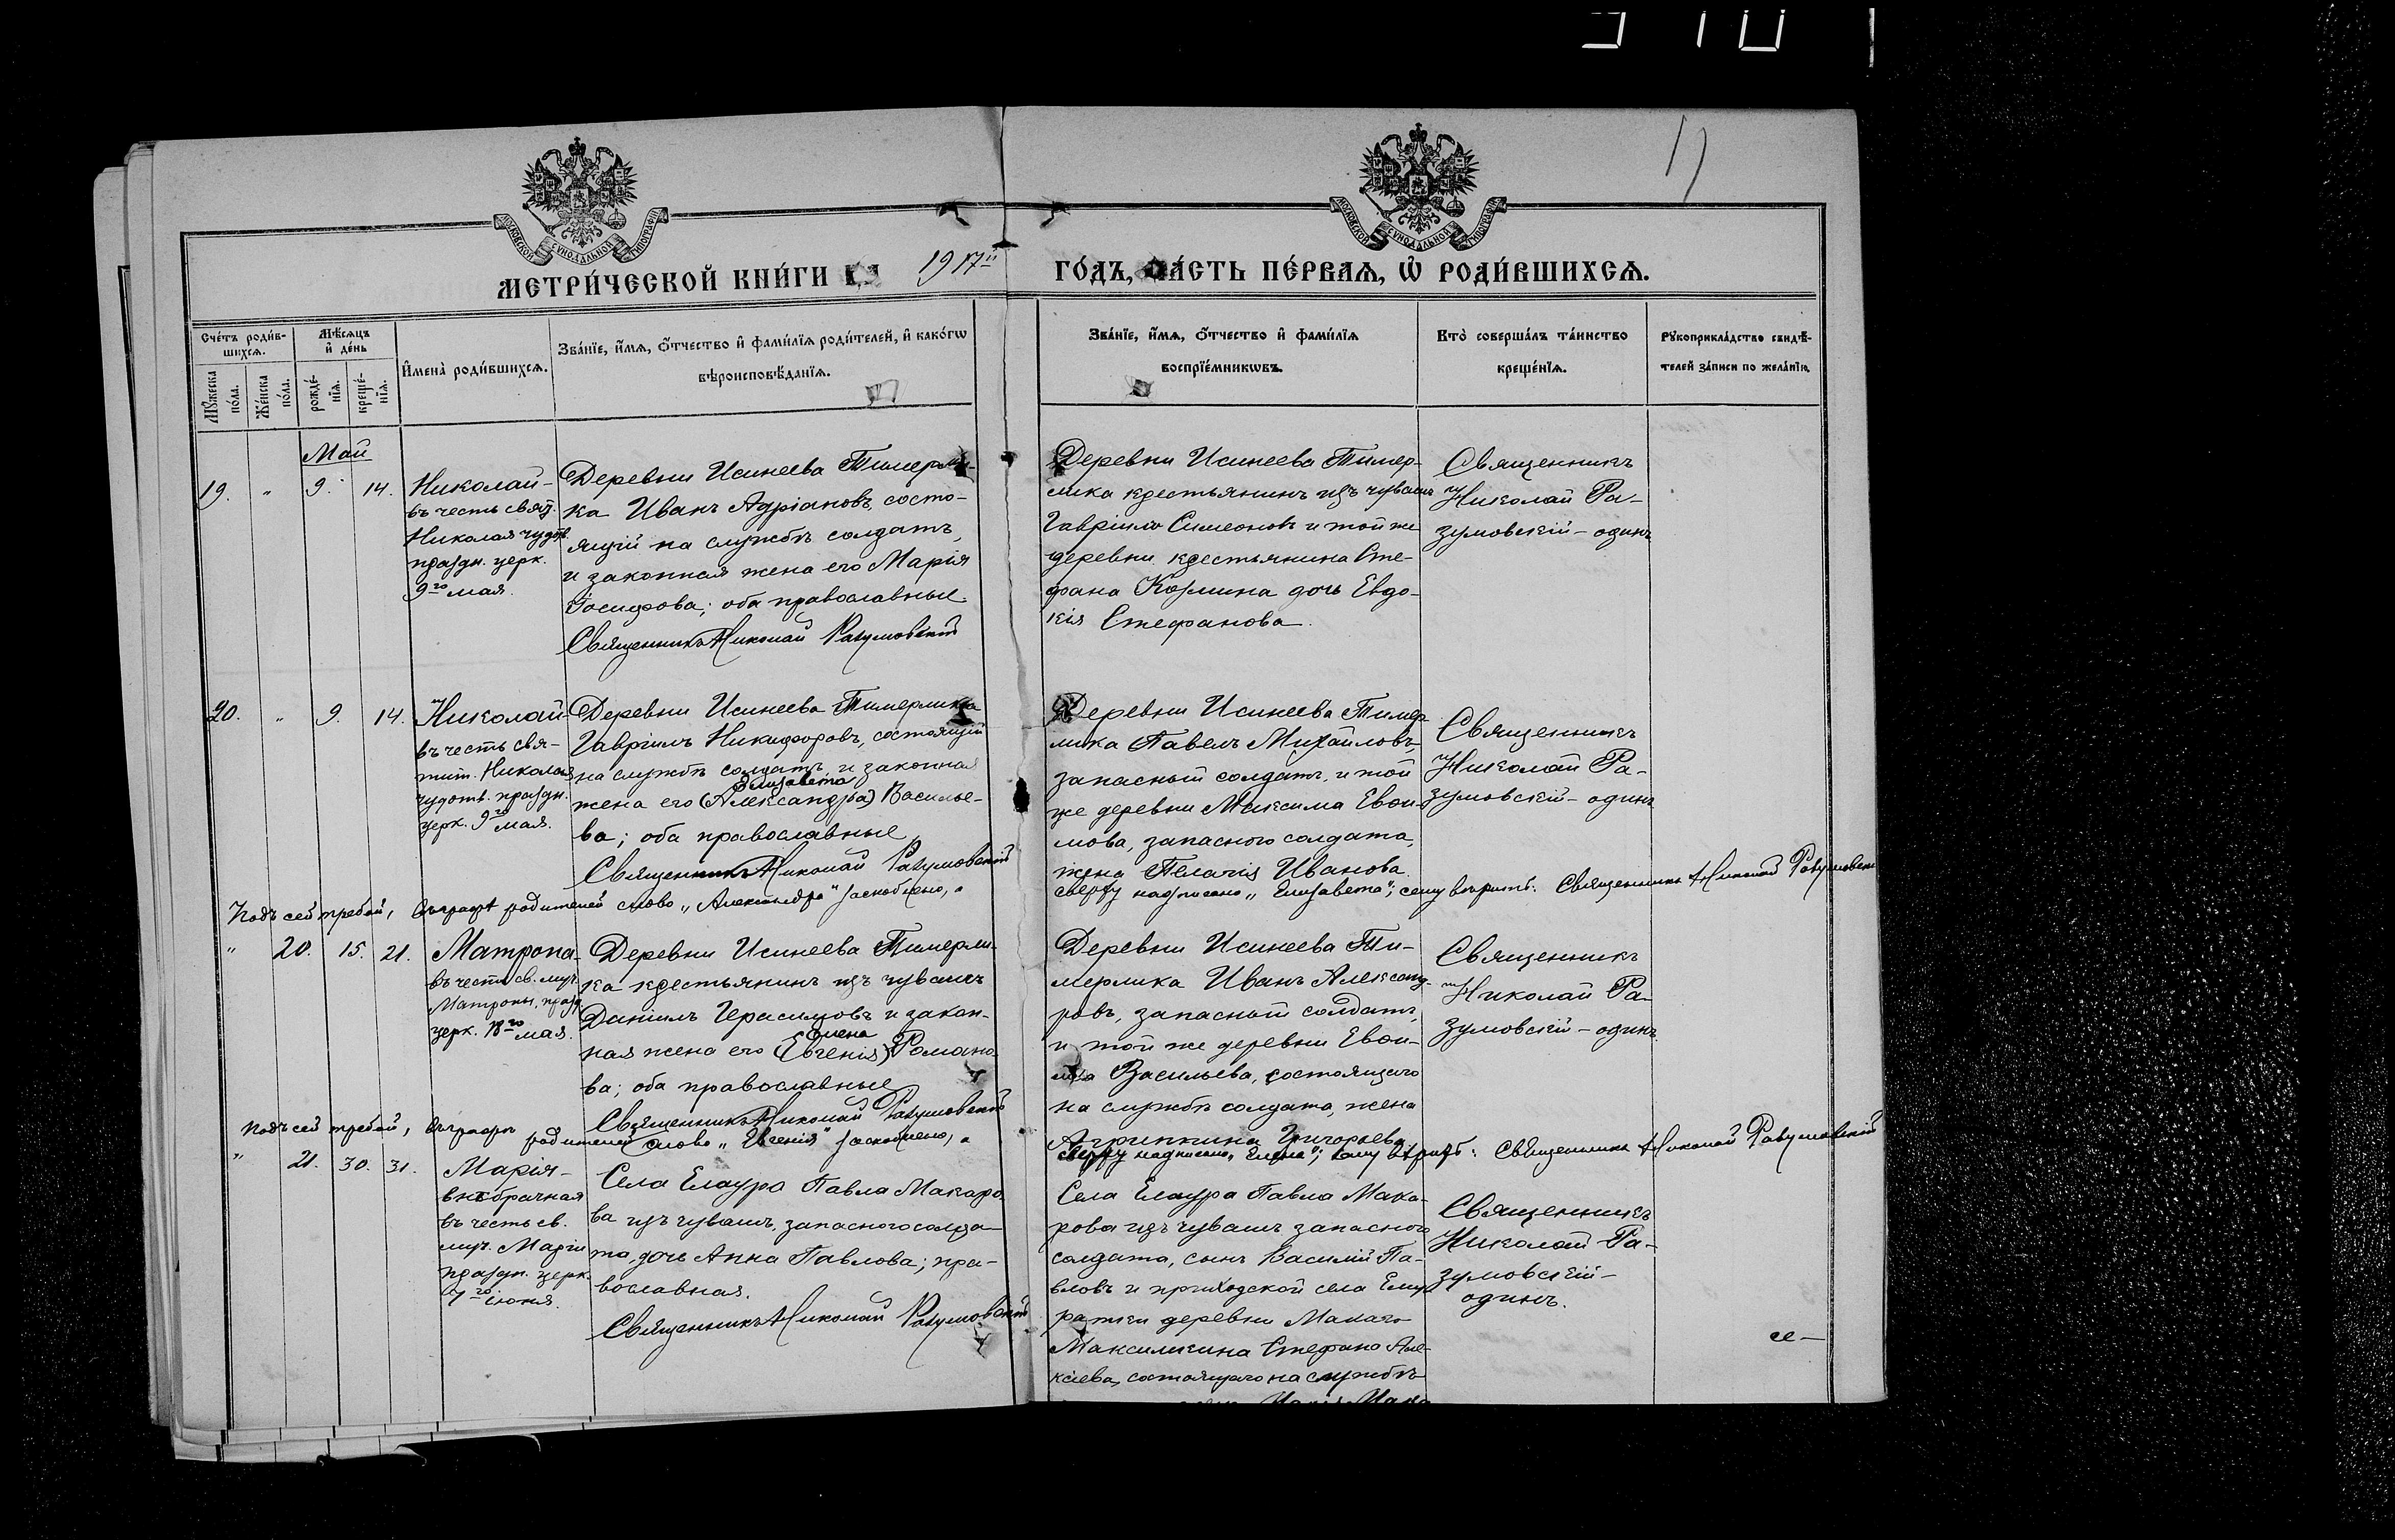 17
МОСКОВСКОЙ СѴНОДАЛЬНОЙ ТИПОГРАФІИ
МОСКОВСКОЙ СѴНОДАЛЬНОЙ ТИПОГРАФІИ
МЕТРИ́ЧЕСКОЙ КНИ́ГИ 1917й ГО́ДЪ, ЧА́СТЬ ПЕ́РВАѦ, Ѡ҆ РОДИ́ВШИХСѦ.
Сче́тъ роди́в-
шихсѧ.
Мѣ́сѧцъ
и҆ де́нь
Мꙋ́жеска
по́ла.
Же́нска
по́ла.
рожде́-
нїѧ.
креще́-
нїѧ.
И҆мена̀ роди́вшихсѧ.
Зва́нїе, и҆́мѧ, ѻ҆́тчество и҆ фами́лїѧ роди́телей, и҆ како́гѡ
вѣроисповѣ́данїѧ.
Зва́нїе, и҆́мѧ, ѻ҆́тчество и҆ фами́лїѧ
воспрїе́мникѡвъ.
Кто̀ соверша́лъ та́инство
креще́нїѧ.
Рꙋкоприкла́дство свидѣ́-
телей за́писи по жела́нїю.
Май
19. " 9. 14.
Николай-
въ честь свят.
Николая чудотв.
праздн. церк.
9го мая.
Деревни Исинеева Тимерли-
ка Иванъ Адріановъ, состо-
ящій на службѣ солдатъ,
и законная жена его Марія
Іосифова; оба православные
Священникъ Николай Разумовскій
Деревни Исинеева Тимер-
лика крестьянинъ изъ чувашъ
Гавріилъ Симеоновъ и той же
деревни крестьянина Сте-
фана Козмина дочь Евдо-
кія Стефанова.
Священникъ
Николай Ра-
зумовскій - одинъ
20. " 9. 14.
Николай-
въ честь свя-
тит. Николая
чудотв. праздн.
церк. 9го мая.
Деревни Исинеева Тимерлика
Гавріилъ Никифоровъ, состоящій
на службѣ солдатъ, и законная
Елизавета
жена его (Александра) Василье-
ва; оба православные
Священникъ Николай Разумовскій
Деревни Исинеева Тимер-
лика Павелъ Михайловъ,
запасный солдатъ, и той
же деревни Максима Евфи-
мова, запасного солдата,
жена Пелагія Иванова.
Священникъ
Николай Ра-
зумовскій - одинъ
Подъ сей требой, въ графѣ родителей слово „Александра" заскоблено, а
сверху надписано „Елизавета"; сему вѣрить. Священникъ Николай Разумовскій
" 20. 15. 21.
Матрона-
въ честь св. муч.
Матроны, празд.
церк. 18го мая.
Деревни Исинеева Тимерли-
ка крестьянинъ изъ чувашъ
Даніилъ Герасимовъ и закон-
Елена
ная жена его (Евгенія) Романо-
ва; оба православные
Священникъ Николай Разумовскій
Деревни Исинеева Ти-
мерлика Иванъ Александ-
ровъ, запасный солдатъ,
и той же деревни Евфи-
мія Васильева, состоящаго
на службѣ солдата, жена
Агриппина Григорьева
Священникъ
Николай Ра-
зумовскій - одинъ
Подъ сей требой, въ графѣ родителей слово „Евгенія" заскоблено, а
сверху надписано „Елена"; сему вѣрить: Священникъ Николай Разумовскій
" 21. 30. 31.
Марія-
внѣбрачная
въ честь св.
муч. Маріи
праздн. церк.
7го іюня.
Села Елаура Павла Макаро-
ва изъ чувашъ, запасного солда-
та, дочь Анна Павлова; пра-
вославная.
Священникъ Николай Разумовскій
Села Елаура Павла Мака-
рова изъ чувашъ запасного
солдата, сынъ Василій Па-
вловъ и приходской села
деревни
Максимкина Стефана Але-
ксіева, состоящаго на службѣ
Священникъ
Николай Ра-
зумовскій -
одинъ.